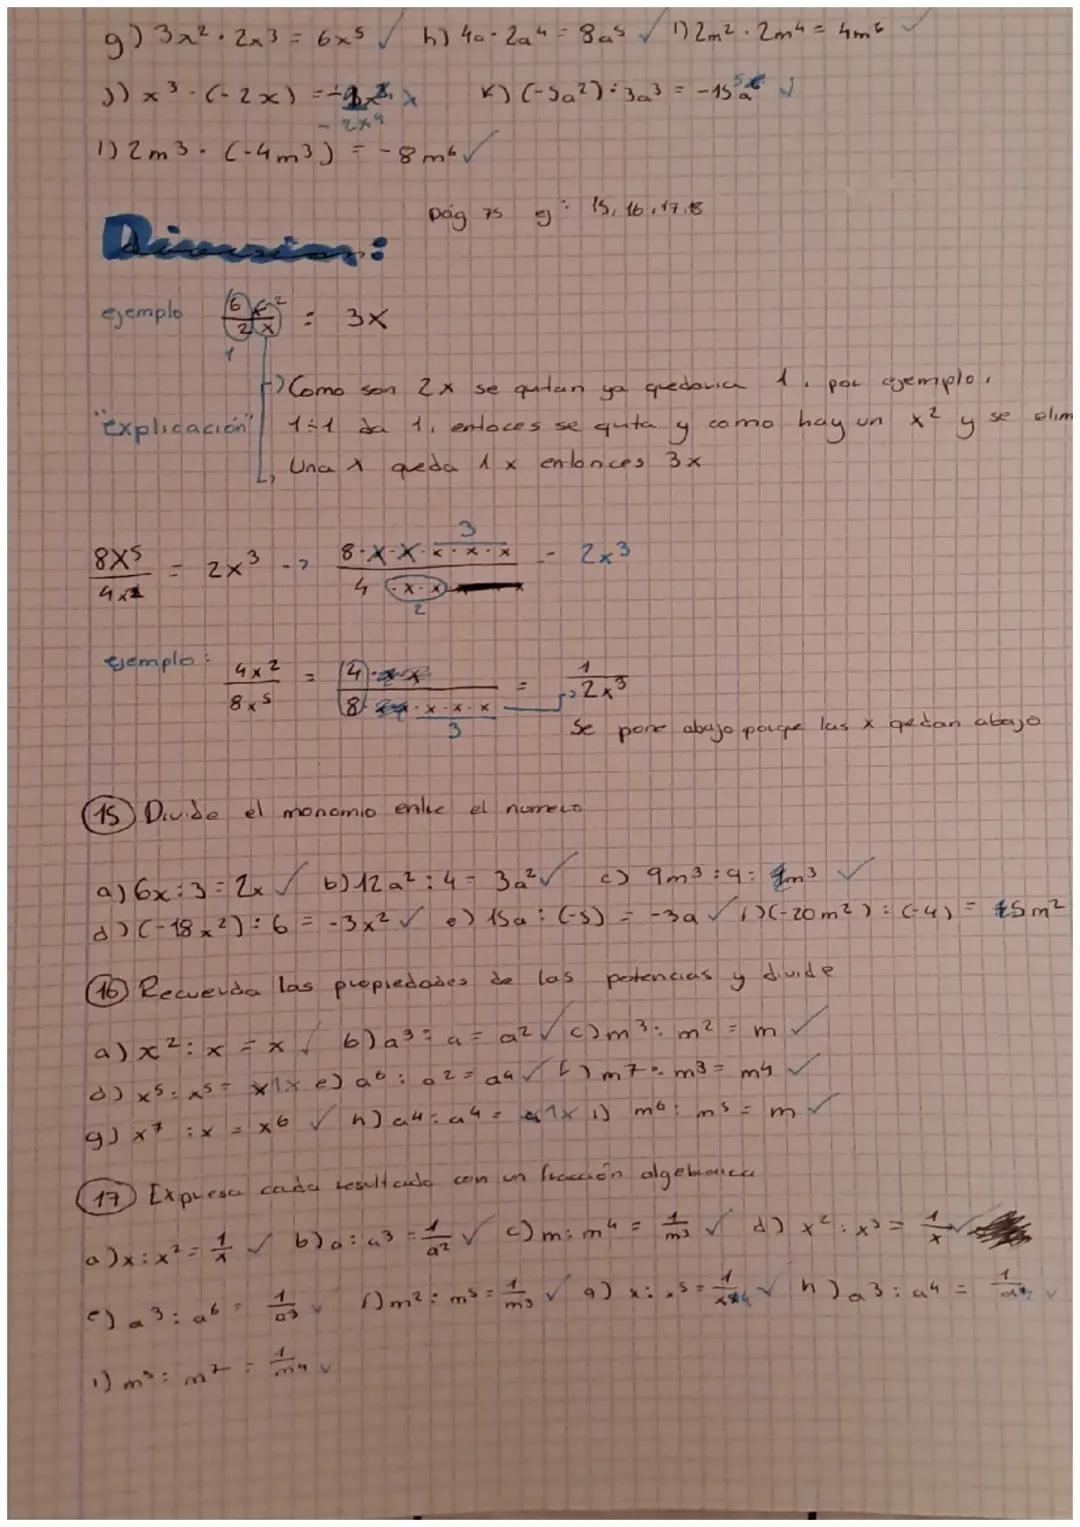 g) 3x² · 2x3 = 6x⁵ ✓ h) 4a · 2a⁴ = 8a⁵ ✓ i) 2m² · 2m⁴ = 4m⁶ ✓
j) x³ · (-2x) = x
- 2x⁴
k) (-5a²) : 3a³ = -15a⁵ ✓
l) 2m³ · (-4m³) = -8m⁶ ✓
pág 75 ej: 15, 16, 17, 18
Division:
ejemplo 6x²/2x = 3x
1
Como son 2x se quitan ya quedaria 1, por ejemplo,
"explicación" 1:1 da 1, entoces se quita y como hay un x² y se elim
Una x queda 1 x entonces 3x
3
8x⁵/4x² = 2x³ -> 8·x·x·x·x·x/4·x·x = 2x³
2
ejemplo: 4x²/8x⁵ = 4·x·x/8·x·x·x·x·x = 1/2x³
3
Se pone abajo porqe las x qedan abajo
15) Divide el monomio entre el numero
a) 6x : 3 = 2x ✓ b) 12a² : 4 = 3a² ✓ c) 9m³ : 9 = 1m³ ✓
d) (-18x²) : 6 = -3x² ✓ e) 15a : (-5) = -3a ✓ f) (-20m²) : (-4) = 5m²
16) Recuerda las propiedades de las potencias y divide
a) x² : x = x ✓ b) a³ : a = a² ✓ c) m³ : m² = m ✓
d) x⁵ : x⁵ = 1 x e) a⁶ : a² = a⁴ ✓ f) m⁷ : m³ = m⁴ ✓
g) x⁷ : x = x⁶ ✓ h) a⁴ : a⁴ = 1 x i) m⁶ : m⁵ = m ✓
17) Expresa cada resultado con un fracción algebraica
a) x : x² = 1/x ✓ b) a : a³ = 1/a² ✓ c) m : m⁴ = 1/m³ ✓ d) x² : x³ = 1/x ✓
e) a³ : a⁶ = 1/a³ ✓ f) m² : m⁵ = 1/m³ ✓ g) x : x⁵ = 1/x⁴ ✓ h) a³ : a⁴ = 1/a ✓
i) m³ : m⁷ = 1/m⁴ ✓